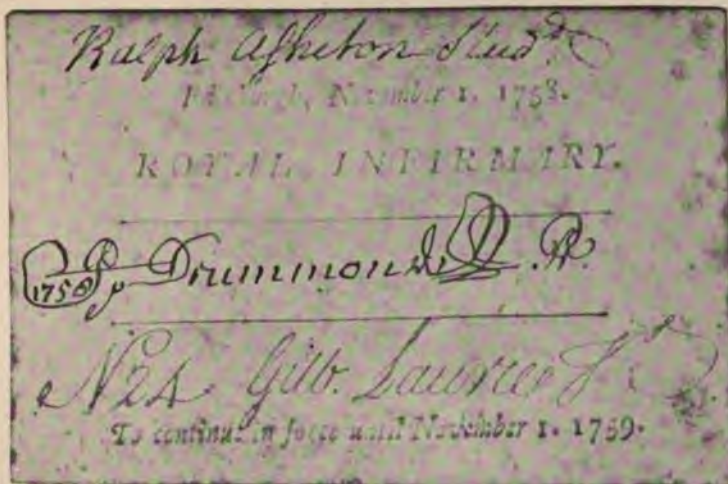 Ralph Asheton Stud.t
Edinburgh, November 1. 1758.
ROYAL INFIRMARY.
1758 Drummond P.
No 24 Gilb. Laurie
To continue in force until November 1. 1759.